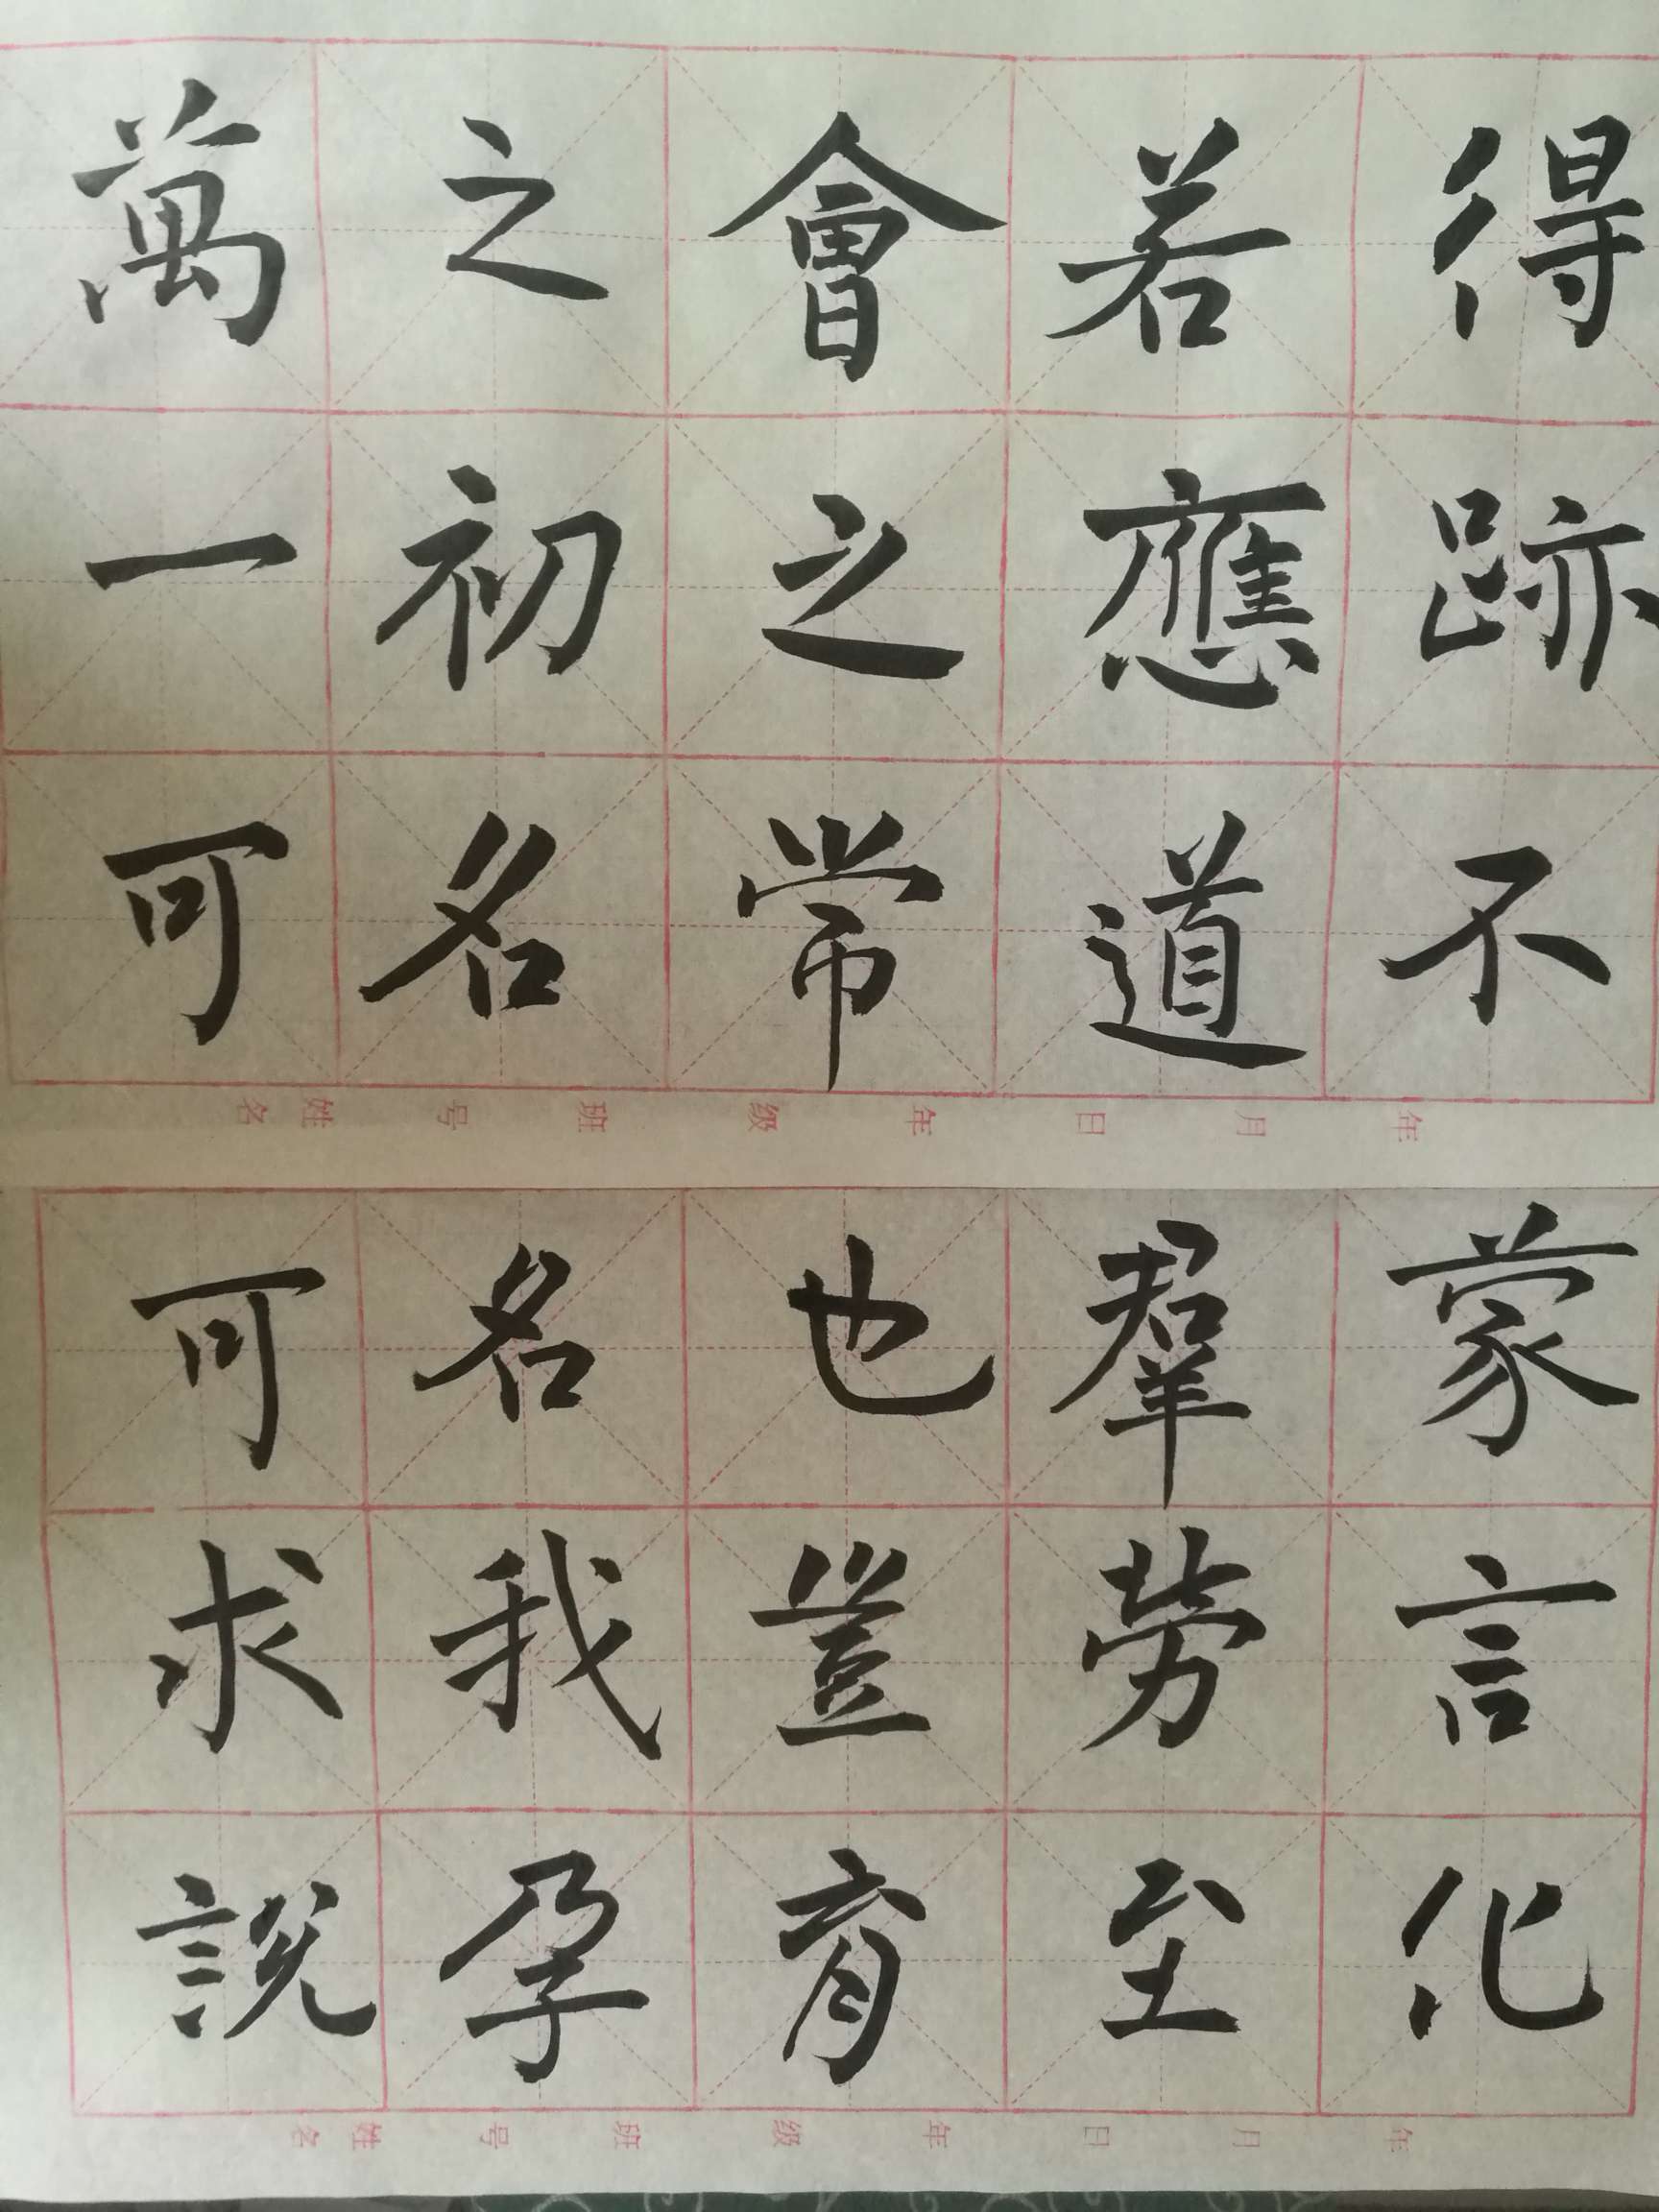 得跡不
若應道
會之常
之初名
萬一可
年 月 日 年 级 班 号 姓名
蒙言化
羣勞至
也豈育
名我孕
可求說
年 月 日 年 级 班 号 姓名